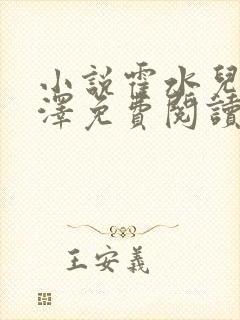 小説霍水兒
澤免費閱讀
王安義